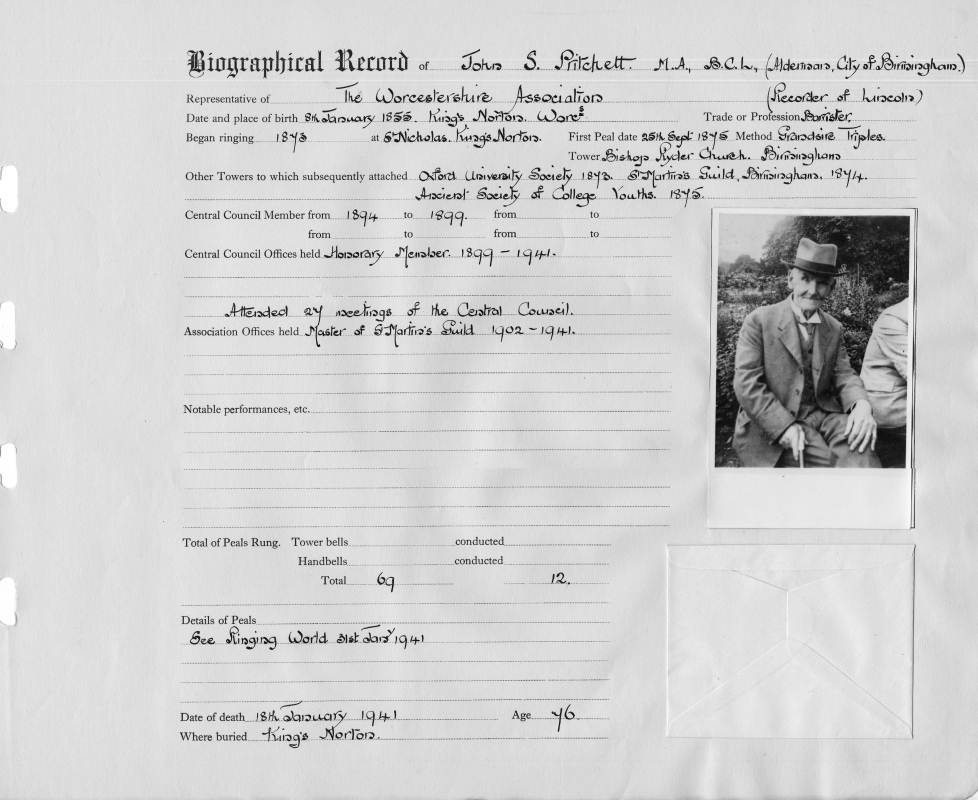 Biographical Record of John S. Pritchett. M.A., B.C.L., (Alderman, City of Birmingham.)
Representative of The Worcestershire Association (Recorder of Lincoln)
Date and place of birth 8th January 1855. King's Norton. Worcs Trade or Profession Barrister.
Began ringing 1873 at St Nicholas. King's Norton. First Peal date 25th Sept 1875 Method Grandsire Triples.
Tower Bishop Ryder Church. Birmingham
Other Towers to which subsequently attached Oxford University Society 1873. St Martin's Guild, Birmingham. 1874.
Ancient Society of College Youths. 1875.
Central Council Member from 1894 to 1899. from to
from to from to
Central Council Offices held Honorary Member. 1899 - 1941.
Attended 27 meetings of the Central Council.
Association Offices held Master of St Martin's Guild 1902 - 1941.
Notable performances, etc.
Total of Peals Rung. Tower bells conducted
Handbells conducted
Total 69 12.
Details of Peals
See Ringing World 31st Jany 1941
Date of death 18th January 1941 Age 76.
Where buried King's Norton.